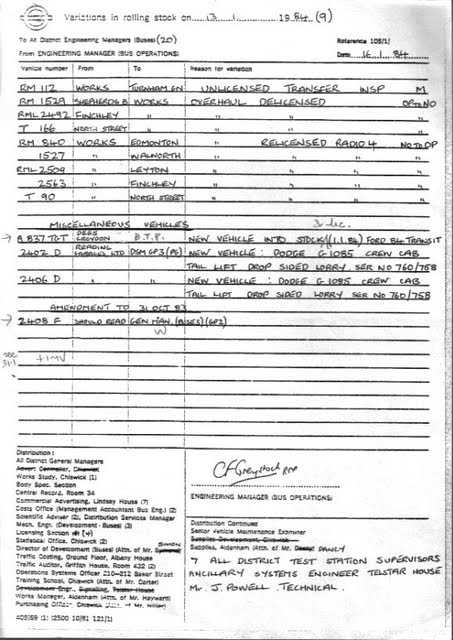 Variations in rolling stock on 13 1 1984 (9)
To All District Engineering Managers (Buses) (20)
Reference 105/1/
From ENGINEERING MANAGER (BUS OPERATIONS)
Date 16.1.84
Vehicle number From To Reason for variation
RM 112 WORKS TURNHAM GN UNLICENSED TRANSFER INSP M
RM 1529 SHEPHERDS B WORKS OVERHAUL DELICENSED OP TO NO
RML 2492 FINCHLEY " " " "
T 166 NORTH STREET " " " "
RM 840 WORKS EDMONTON RELICENSED RADIO 4 NO TO OP
1527 " WALWORTH " " "
RML 2509 " LEYTON " " "
2563 " FINCHLEY " " "
T 90 " NORTH STREET " " "
MISCELLANEOUS VEHICLES
A 837 TGT DEES CROYDON B.T.P. NEW VEHICLE INTO STOCK (1.1.84) FORD 84 TRANSIT
2402 D READING DSM GP3 (PG) NEW VEHICLE: DODGE G 1085 CREW CAB
TAIL LIFT DROP SIDED LORRY. SER NO 760/758
2406 D " " NEW VEHICLE: DODGE G 1085 CREW CAB
TAIL LIFT DROP SIDED LORRY SER NO 760/758
AMENDMENT TO 31 OCT 83
2408 F SHOULD READ GEN MAN. (BUSES) (GP2)
W
Distribution:
All District General Managers
Advert Controller, Chiswick
Works Study, Chiswick (1)
Body Spec. Section
Central Record, Room 34
Commercial Advertising, Lindsey House (7)
Costs Office (Management Accountant Bus Eng.) (2)
Scientific Adviser (2), Distribution Services Manager
Mech. Engr. (Development - Buses) (3)
Licensing Section (4)
Statistical Office, Chiswick (2)
SIMON
Director of Development (Buses) (Attn. of Mr.
Traffic Costing, Ground Floor, Albany House
Traffic Auditor, Griffith House, Room 432 (2)
Operations Systems Officer 210-212 Baker Street
Training School, Chiswick (Attn. of Mr. Carter)
Development Engr., Signalling, Telstar House
Works Manager, Aldenham (Attn. of Mr. Hayward)
Purchasing Officer, Chiswick (Attn. of Mr. Hiller)
408/69 (1) 12500 10/81 121/1)
ENGINEERING MANAGER (BUS OPERATIONS)
Distribution Continued
Senior Vehicle Maintenance Examiner
Supplies Development, Chiswick
Supplies, Aldenham (Attn of Mr. DANCY
7 ALL DISTRICT TEST STATION SUPERVISORS
ANCILLARY SYSTEMS ENGINEER TELSTAR HOUSE
Mr J. POWELL. TECHNICAL.